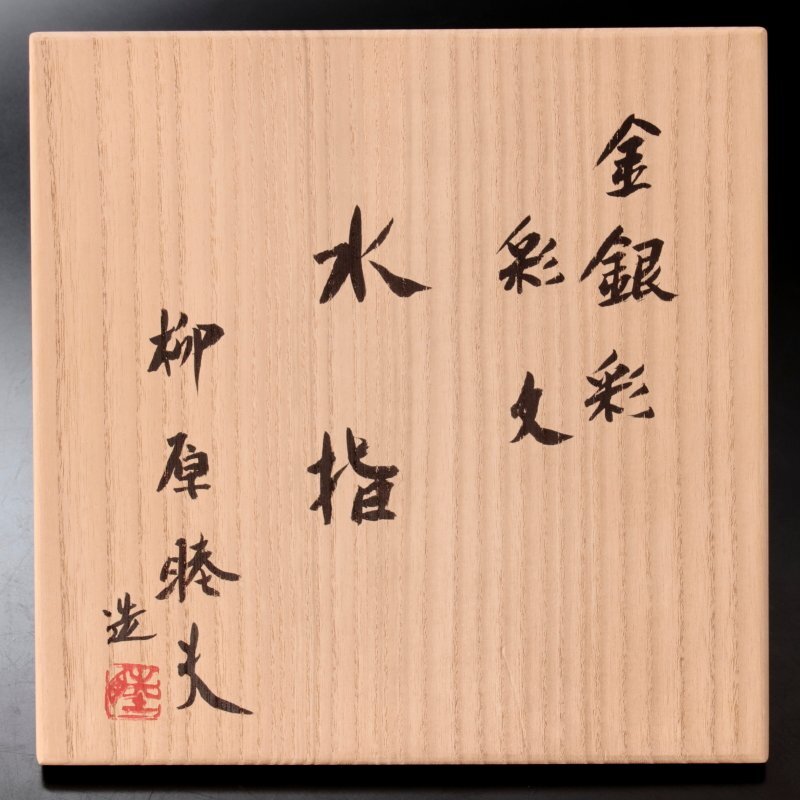 金銀彩
彩文
水指
柳原睦夫
造
睦